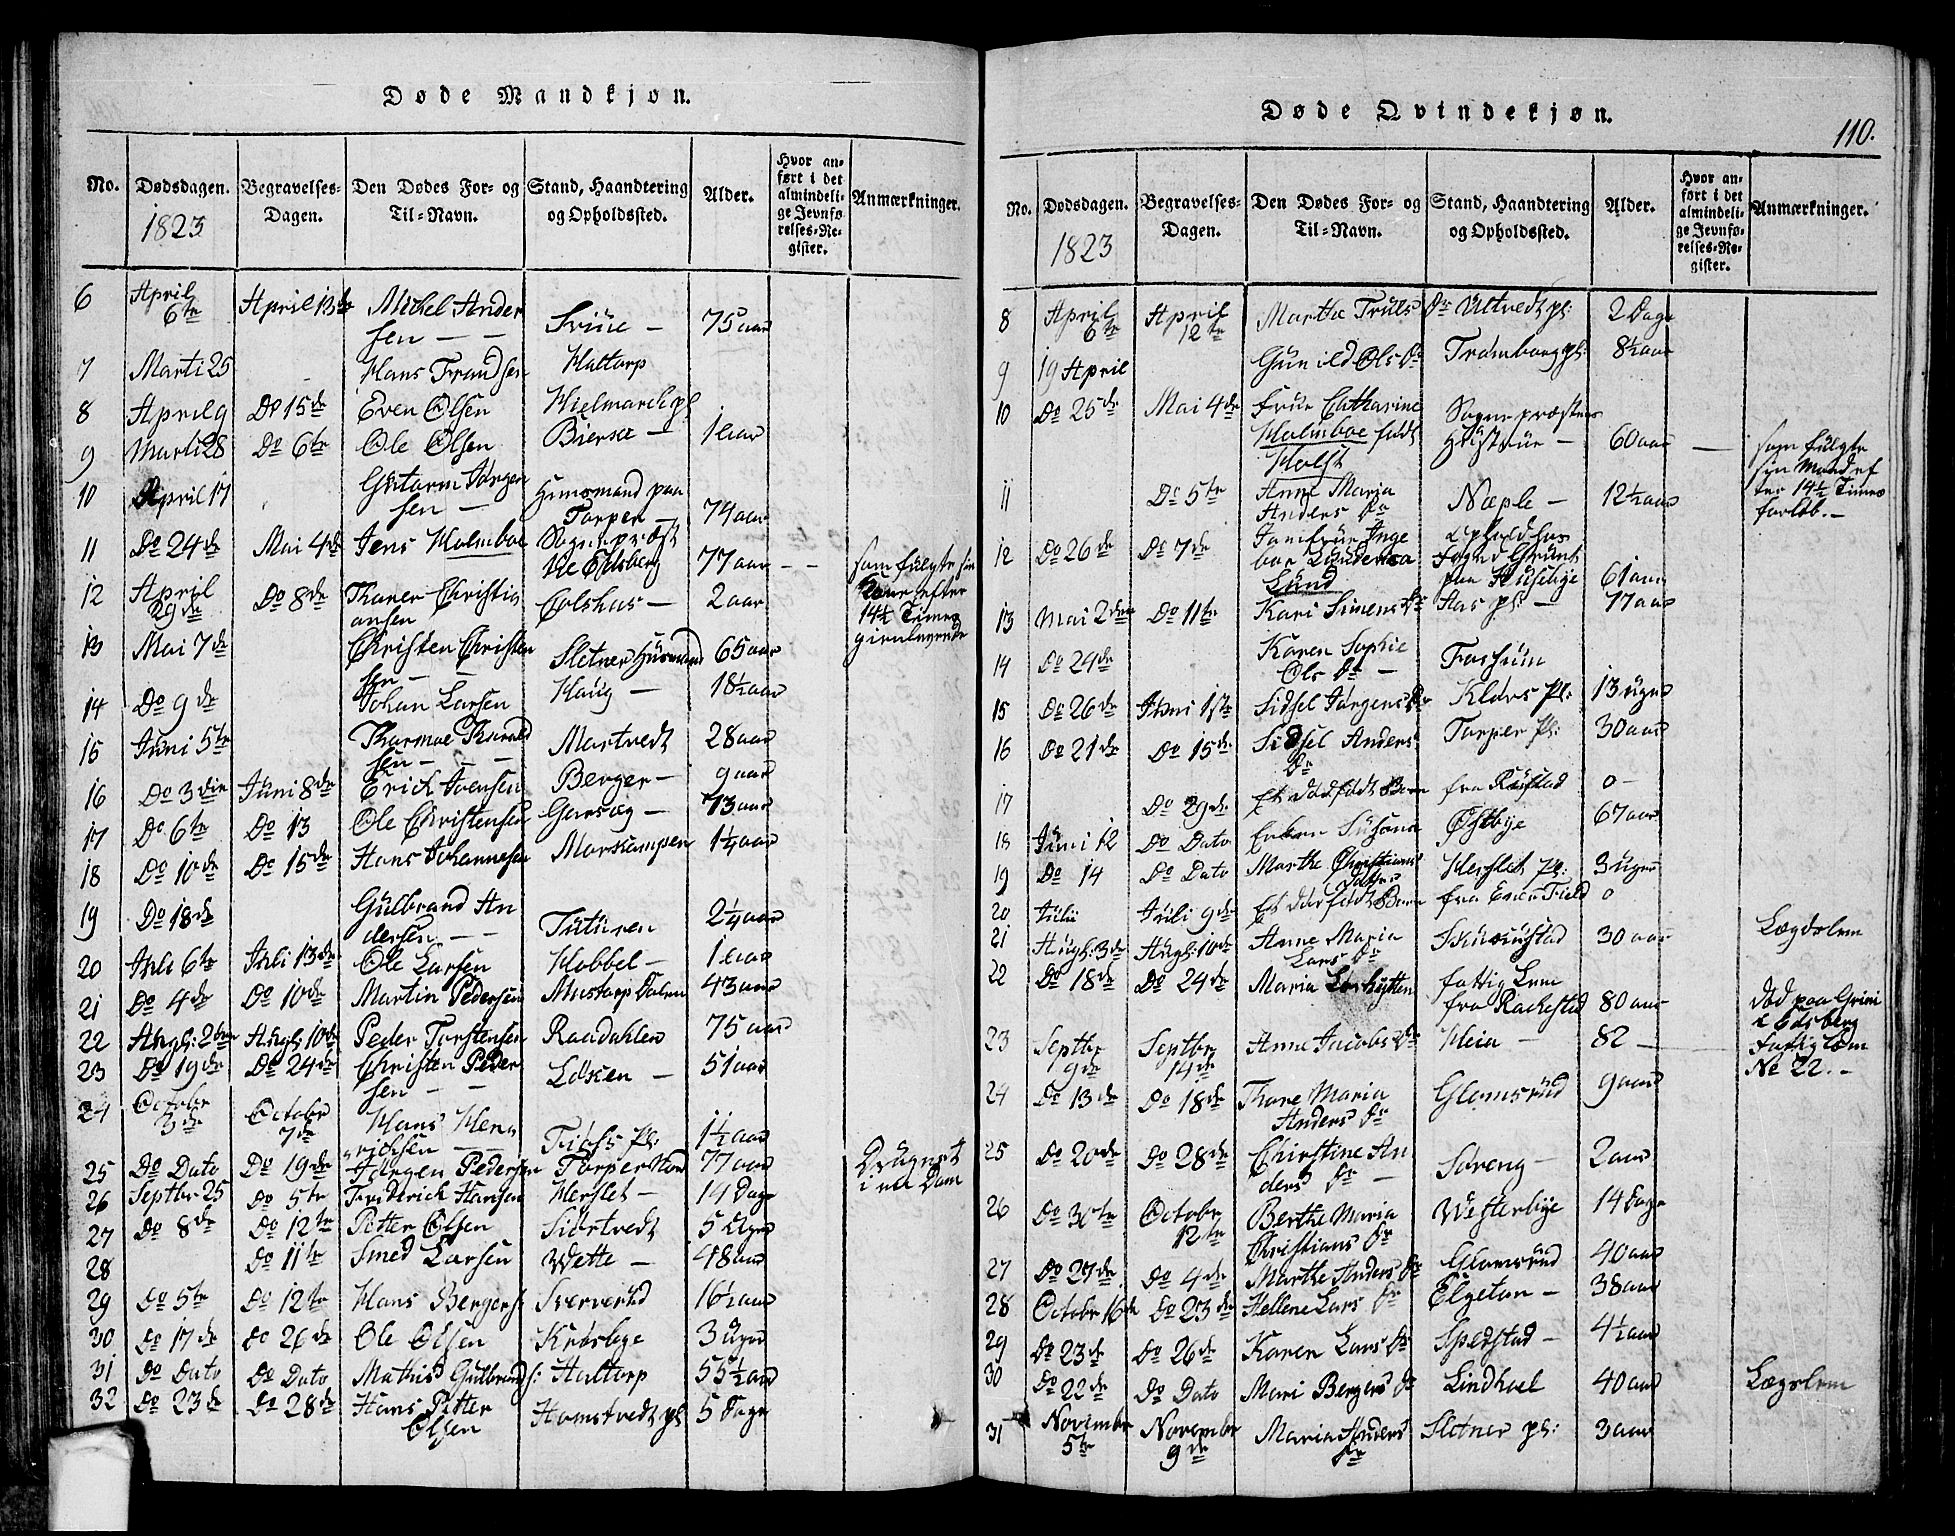 Døde Mandkjøn.
No. Dødsdagen. 1823 Begravelses-Dagen. Den Dødes For- og Til-Navn. Stand, Haandtering og Opholdssted. Alder. Hvor anført i det almindelige Jevnførelses-Register. Anmærkninger.
6 April 6te April 13de Michel Andersen — 75 aar
7 Marti 25 Hans Frandsen Haltorp
8 April 9 Do 15de Even Olsen Hielmark pl
9 Marti 28 Do 6te Ole Olsen Biersee — 1 aar
10 April 17 Guttorm Jørgensen — Huusmand paa Torper — 74 aar
11 Do 24de Mai 4de Jens Holmboe Sognepræst til Edsberg 77 aar — som fulgte sin Kone efter 14½ Times
12 April 29de Do 8de Christiansen Colshus — 2 aar
13 Mai 7de Christen Christensen — Sletner Huusmand 65 aar
14 Do 9de Johan Larsen Haug — 18½ aar
15 Juni 5te Thormoe sen — Martvedt 28 aar
16 Do 3die Juni 8de Erich Berger — 9 aar
17 Do 6te Do 13 Ole Christensen 73 aar
18 Do 10de Do 15de Hans Johannesen 1¼ aar
19 Do 18de Gulbrand Andersen — Tuturen 2¼ aar
20 Juli 6te Juli 13de Ole Larsen Hobbel — 1 aar
21 Do 4de Do 10de Martin Pedersen Mustorp Dalen 43 aar
22 Augst: 2den Augst 10de Peder Torstensen Raadahlen 75 aar
23 Do 19de Do 24de Christen Pedersen — Løken — 51 aar
24 October 3de October 7de Hans Henrichsen — pl: 1½ aar
25 Do Dato Do 19de Jørgen Pedersen Torper 77 aar Drugnet i en Dam
26 Septbr 25 Do 5te Friderich Hansen Herslet — 14 Dage
27 Do 8de Do 12te Petter Olsen 5 Uger
28 Do 11te Smed Larsen Wette — 48 aar
29 Do 5te Do 12te Hans Bergers: Sververud 16½ aar
30 Do 17de Do 26de Ole Olsen 3 Uger
31 Do Dato Do Dato Mathis Gulbrands: Haltorp 55½ aar
32 Do 23de Do 28de Hans Petter Olsen Homstvedt pl 5 Dage
Døde Qvindekjøn.
110.
No. Dødsdagen. 1823 Begravelses-Dagen. Den Dødes For- og Til-Navn. Stand, Haandtering og Opholdssted. Alder. Hvor anført i det almindelige Jevnførelses-Register. Anmærkninger.
8 April 6te April 12te Marthe Truls Dr Ultvedt pl: 2 Dage
9 19 April Gunild Ols Dr Tromborg pl: 8½ aar
10 Do 25de Mai 4de Frue Catharine Holmboe født Holst Sognepræstens Hustrue — 60 aar — som fulgte sin Mand efter 14½ Times forløb. —
11 Do 5te Anne Maria Anders Dr Næple — 12½ aar
12 Do 26de Do 7de Jomfrue Lund Ophold hos Foged Grünt paa Huseby 61 aar
13 Mai 2den Do 11te Kari Simens Dr Aas pl: — 17 aar
14 Do 24de Karen Sophie Ols Dr — Fossum
15 Do 26de Juni 1ste Sidsel Jørgens Dr Kløvs Pl: 13 uger
16 Do 21de Do 15de Sidsel Anders Dr Torper Pl: 30 aar
17 Do 29de Et dødfødt Barn fra Rustad 0 —
18 Juni 12 Do Dato Enken Susana Østbye 67 aar
19 Do 14 Do Dato Marthe Christians Datter Herslet Pl: 3 uger
20 Julii Juli 9de Et dødfødt Barn fra 0
21 Augst: 3de Augst: 10de Anne Maria Lars Dr 30 aar Lægdslem
22 Do 18de Do 24de Maria fattig Lem fra Rackestad 80 aar død paa Grini i Edsberg Fattiglem No 22. —
23 Septbr 9de Septbr 14de Anne Jacobs Dr Heia — 82 —
24 Do 13de Do 18de Thore Maria Anders Dr Glomsrud 9 aar
25 Do 20de Do 28de Christine Anders Dr — Søreng — 2 aar
26 Do 30te October 12te Berthe Maria Christians Dr Westerbye 14 Dage
27 Do 27de Do 4de Marthe Anders Dr Glomsrud 40 aar
28 October 16de Do 23de Hellene Lars Dr Elgetun — 38 aar
29 Do 23de Do 26de Karen Lars Dr Spedstad — 4½ aar
30 Do 22de Do Dato Mari Bergers Dr Lindhoel 40 aar Lægslem
31 November 5te November 9de Maria Anders Dr Sletner pl: 3 aar